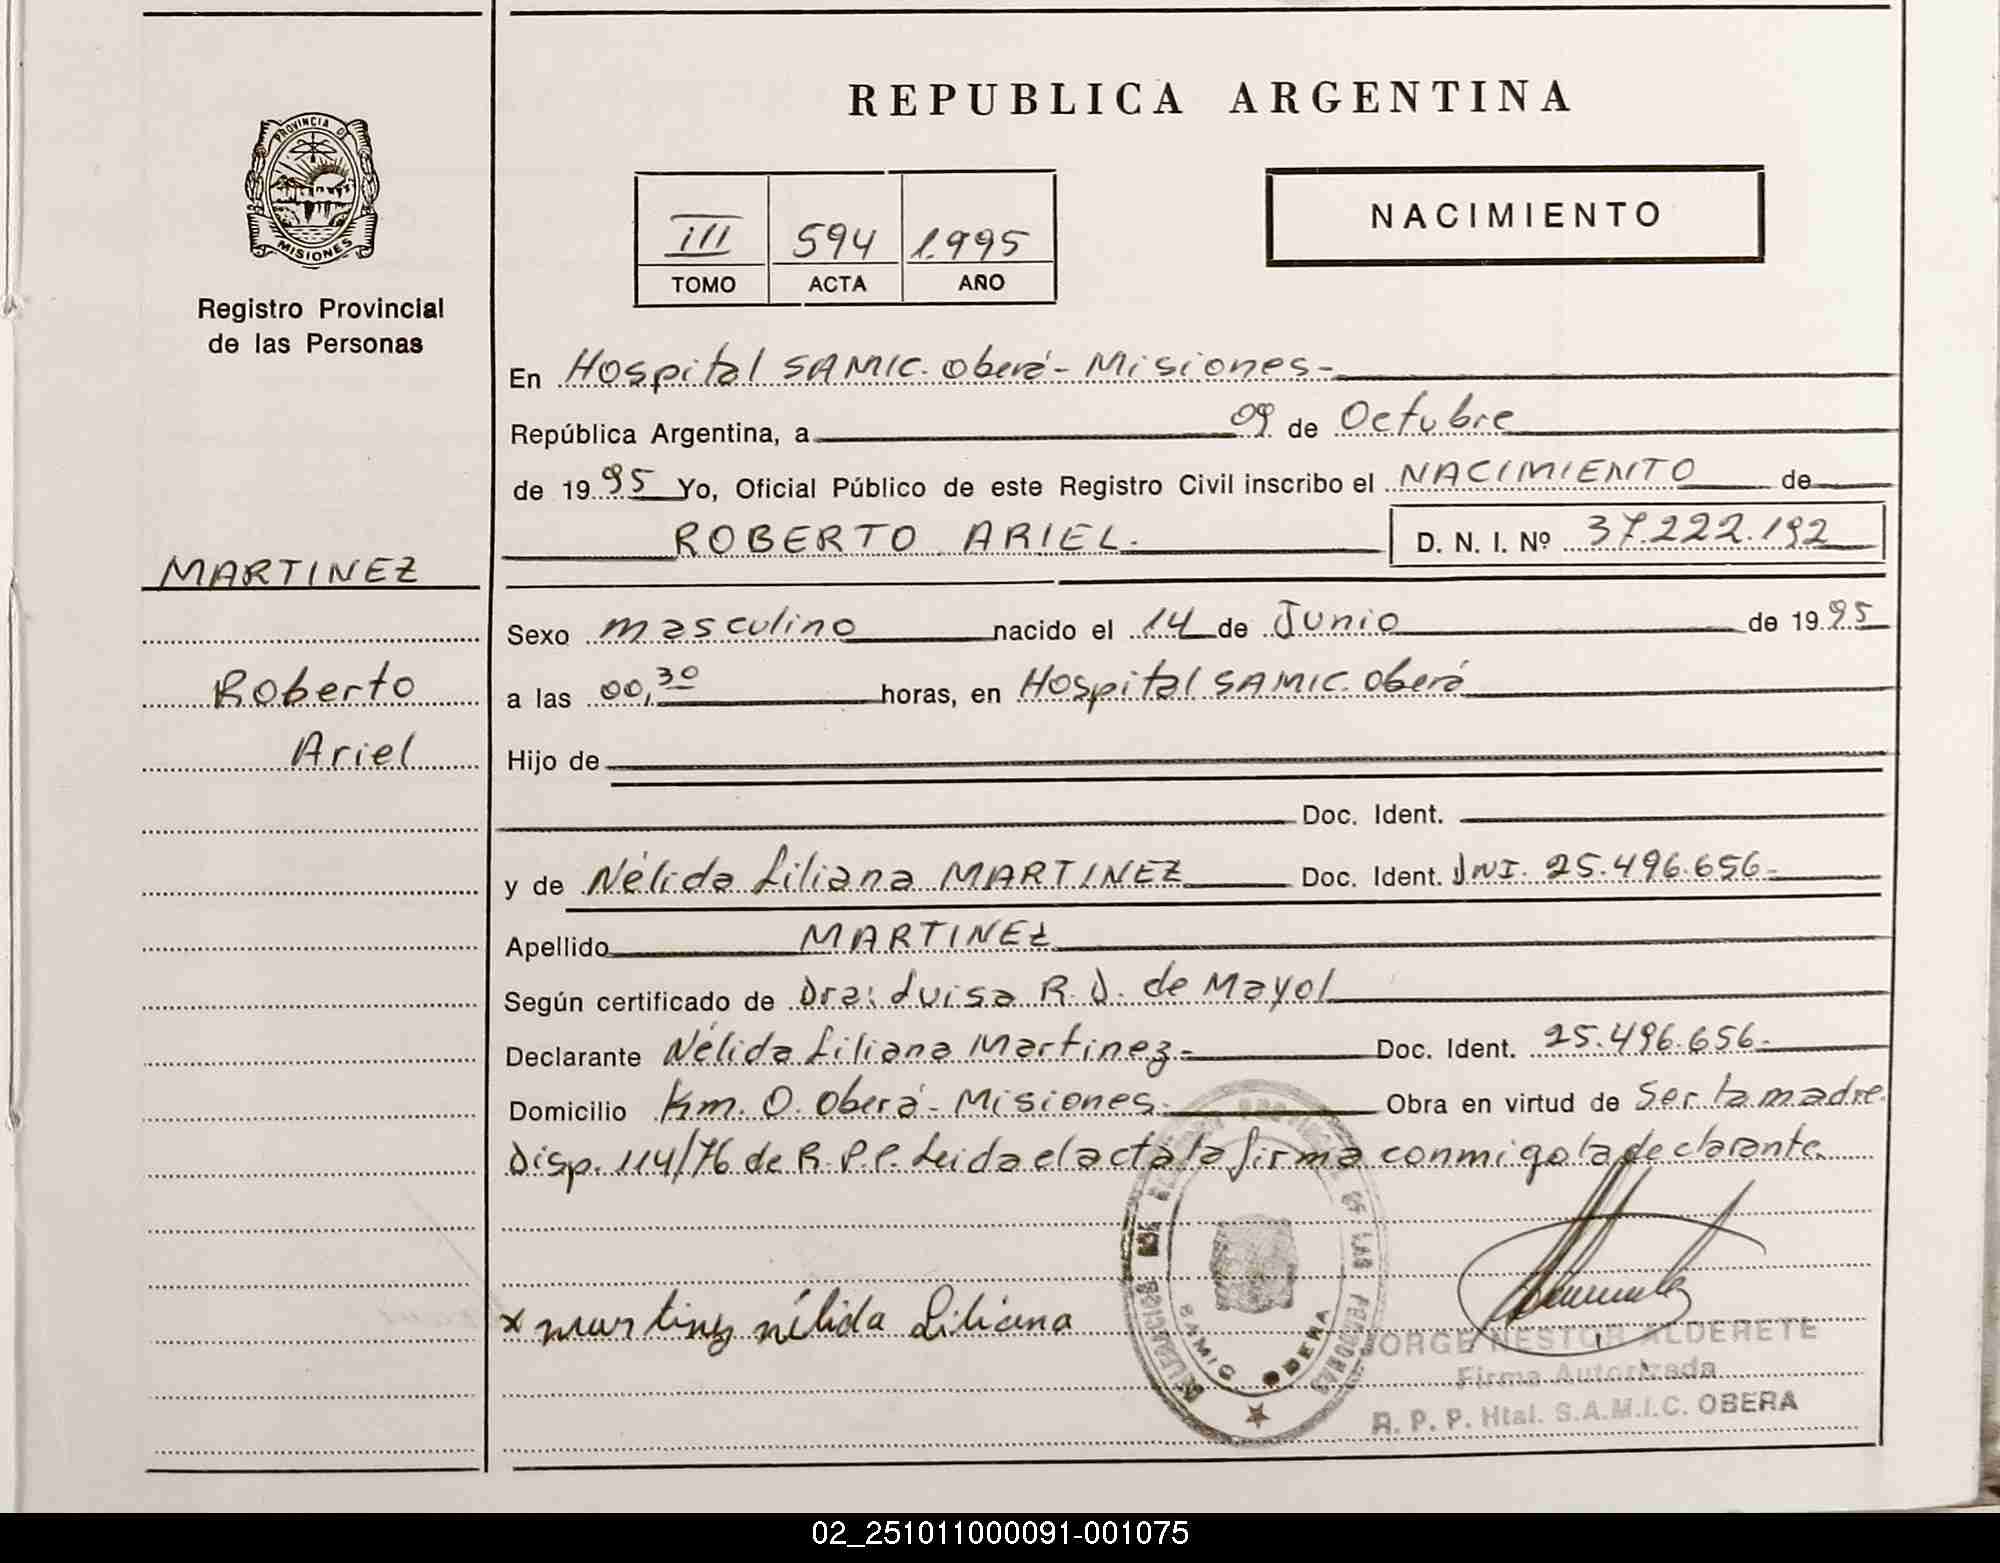 REPUBLICA ARGENTINA
PROVINCIA DE
MISIONES
Registro Provincial
de las Personas
NACIMIENTO
III 594 1.995
TOMO ACTA AÑO
En Hospital SAMIC. Oberá - Misiones -
República Argentina, a 09 de Octubre
de 1995 Yo, Oficial Público de este Registro Civil inscribo el NACIMIENTO de
ROBERTO ARIEL. D. N. I. Nº 37.222.192
MARTINEZ
Roberto
Ariel
Sexo masculino nacido el 14 de Junio de 1995
a las 00,30 horas, en Hospital SAMIC. Oberá
Hijo de
Doc. Ident.
y de Nélida Liliana MARTINEZ Doc. Ident. DNI. 25.496.656-
Apellido MARTINEZ
Según certificado de Dra: Luisa R. D. de Mayol
Declarante Nélida Liliana Martinez - Doc. Ident. 25.496.656-
Domicilio Km. 0. Oberá - Misiones - Obra en virtud de Ser la madre.
Disp. 114/76 de R.P.P. Leida el acta la firma conmigo la declarante.
x Martinez nélida Liliana
DELEGACION DEL REGISTRO PROVINCIAL DE LAS PERSONAS
SAMIC OBERA
JORGE NESTOR ALDERETE
Firma Autorizada
R. P. P. Htal. S.A.M.I.C. OBERA
02_251011000091-001075